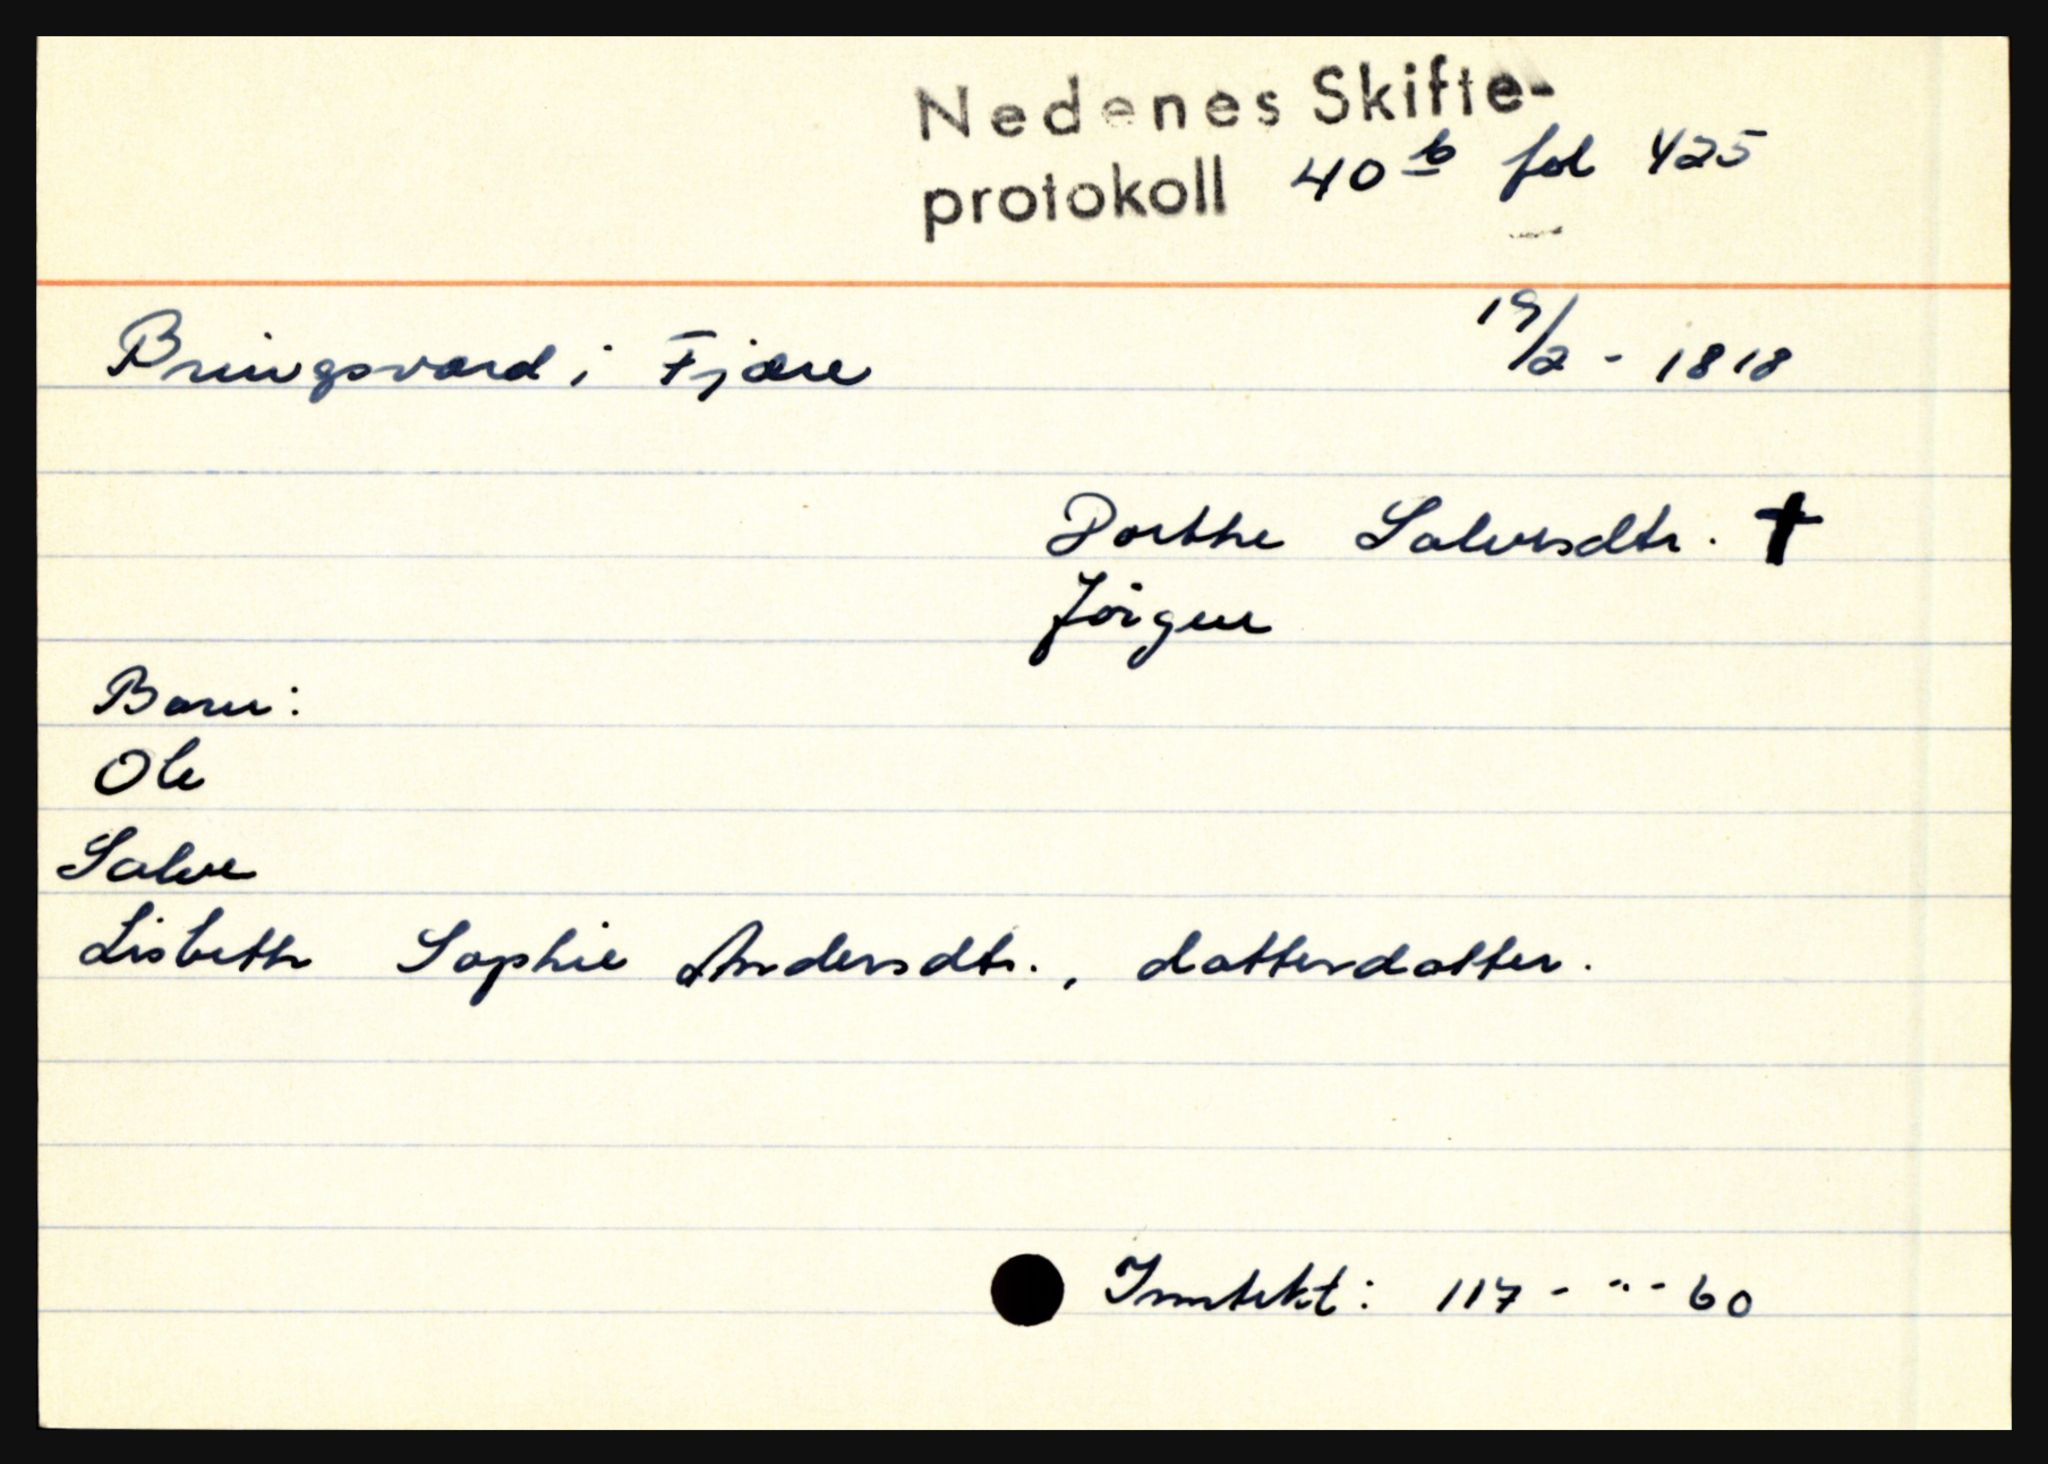 Nedenes Skifte-
protokoll 40 b fol 425
Bringsværd i Fjære 19/2 - 1818
Dorthe Salvesdtr. †
Jörgen
Barn:
Ole
Salve
Lisbeth Sophie Andersdtr., datterdatter.
Inntekt: 117 - " - 60